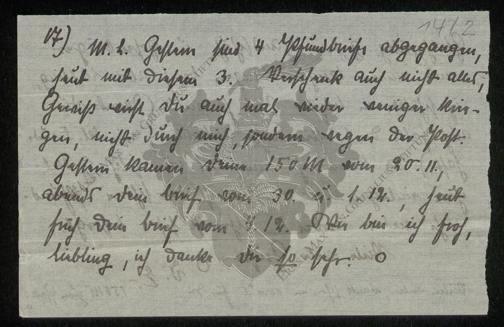 14/2
17) M. L. Gestern sind 4 Pfundbriefe abgegangen,
heut mit diesem 3. Verschenk auch nicht alles,
Gewiß wirst Du auch mal wieder weniger krie-
gen, nicht durch mich, sondern wegen der Post.
Gestern kamen deine 150 M vom 20.11,
abends dein brief vom 30. u 1.12, heut
früh dein brief vom 12. Wie bin ich froh,
Liebling, ich danke dir so sehr.